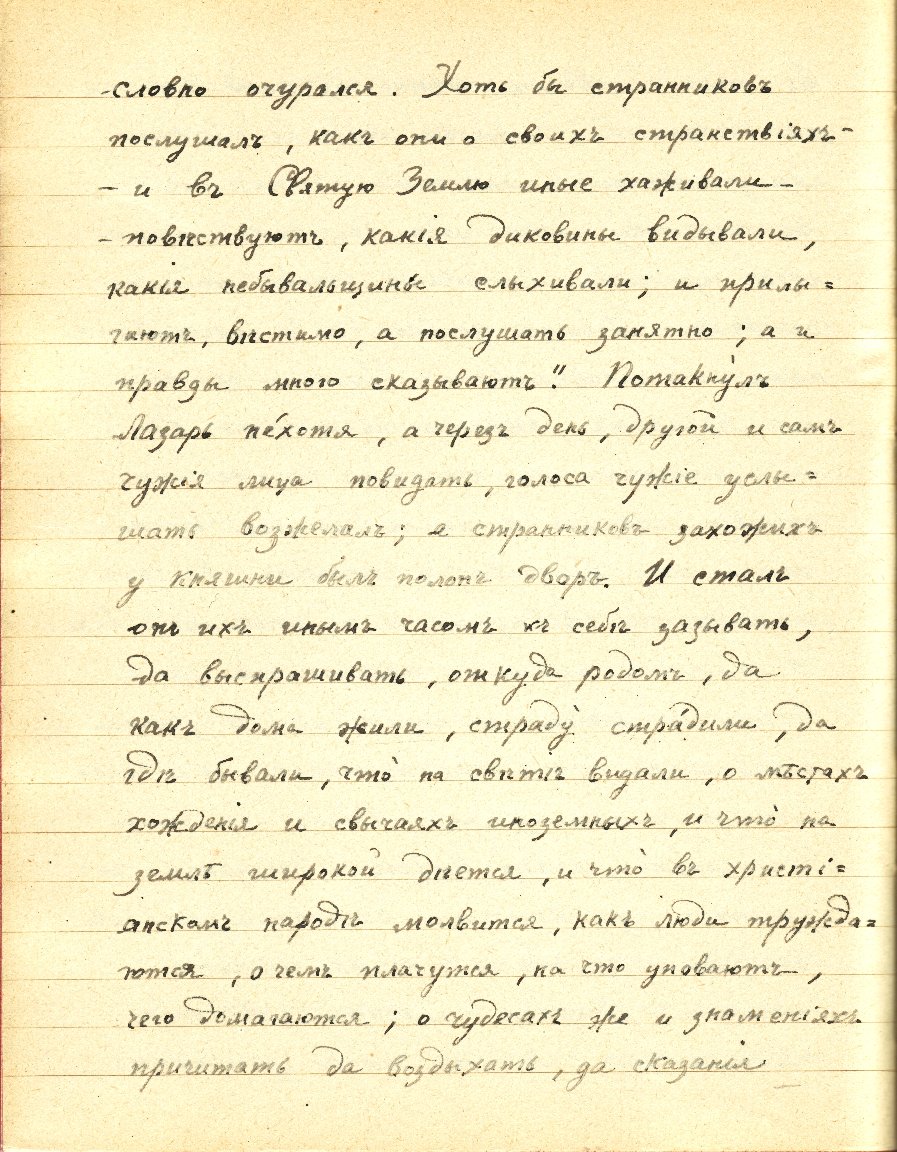 -словно очурался. Хоть бы странниковъ
послушалъ, какъ они о своихъ странствіяхъ-
- и въ Святую Землю иные хаживали -
- повѣствуютъ, какія диковины видывали,
какія небывальщины слыхивали; и прилы=
гаютъ, вѣстимо, а послушать занятно; а и
правды много сказываютъ". Потакну́лъ
Лазарь не́хотя, а черезъ день, другой и самъ
чужія лица повидать, голоса чужіе услы=
шать возжелалъ; а странниковъ захожихъ
у княгини былъ полонъ дворъ. И сталъ
онъ ихъ инымъ часомъ къ себѣ зазывать,
да выспрашивать, откуда родомъ, да
какъ дома жили, страду́ стра́дили, да
гдѣ бывали, что̀ на свѣтѣ видали, о мѣстахъ
хожденія и свычаяхъ иноземныхъ, и что̀ на
землѣ широкой дѣется, и что̀ въ христі=
анскомъ народѣ молвится, какъ люди тружда=
ются, о чемъ плачутся, на что уповаютъ,
чего домагаются; о чудесахъ же и знаменіяхъ
причитать да воздыхать, да сказанія